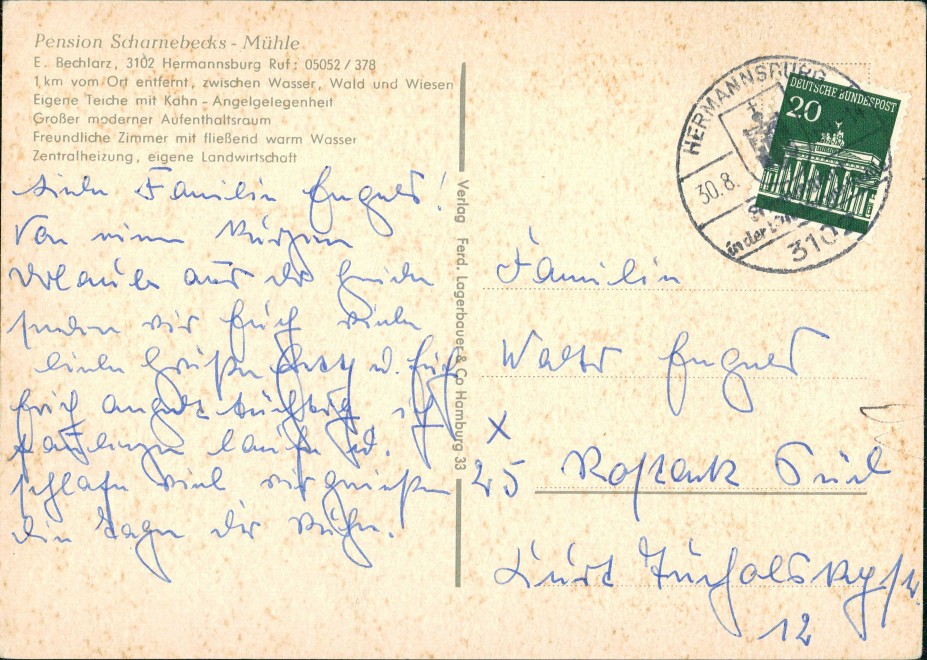 Pension Scharnebecks - Mühle
E. Bechlarz, 3102 Hermannsburg Ruf: 05052 / 378
1 km vom Ort entfernt, zwischen Wasser, Wald und Wiesen
Eigene Teiche mit Kahn - Angelgelegenheit
Großer moderner Aufenthaltsraum
Freundliche Zimmer mit fließend warm Wasser
Zentralheizung, eigene Landwirtschaft
Liebe Familie
Von einem kurzen
Urlaub aus der Heide
senden wir Euch viele
liebe Grüße u.
Erich angelt tüchtig ich
laufen u.
schlafe viel wir genießen
die Tage der Ruhe.
Verlag Ferd. Lagerbauer & Co Hamburg 33
HERMANNSBURG
30.8.
in der
3102
DEUTSCHE BUNDESPOST
20
Familie
Walter
X
25 Rostock Süd
Kurt Tucholskystr
12